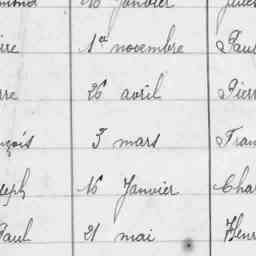 16 Janvier
rre 1er novembre Paul
rre 26 avril Pierr
nçois 3 mars Fran
seph 16 Janvier Char
Paul 21 mai Henr